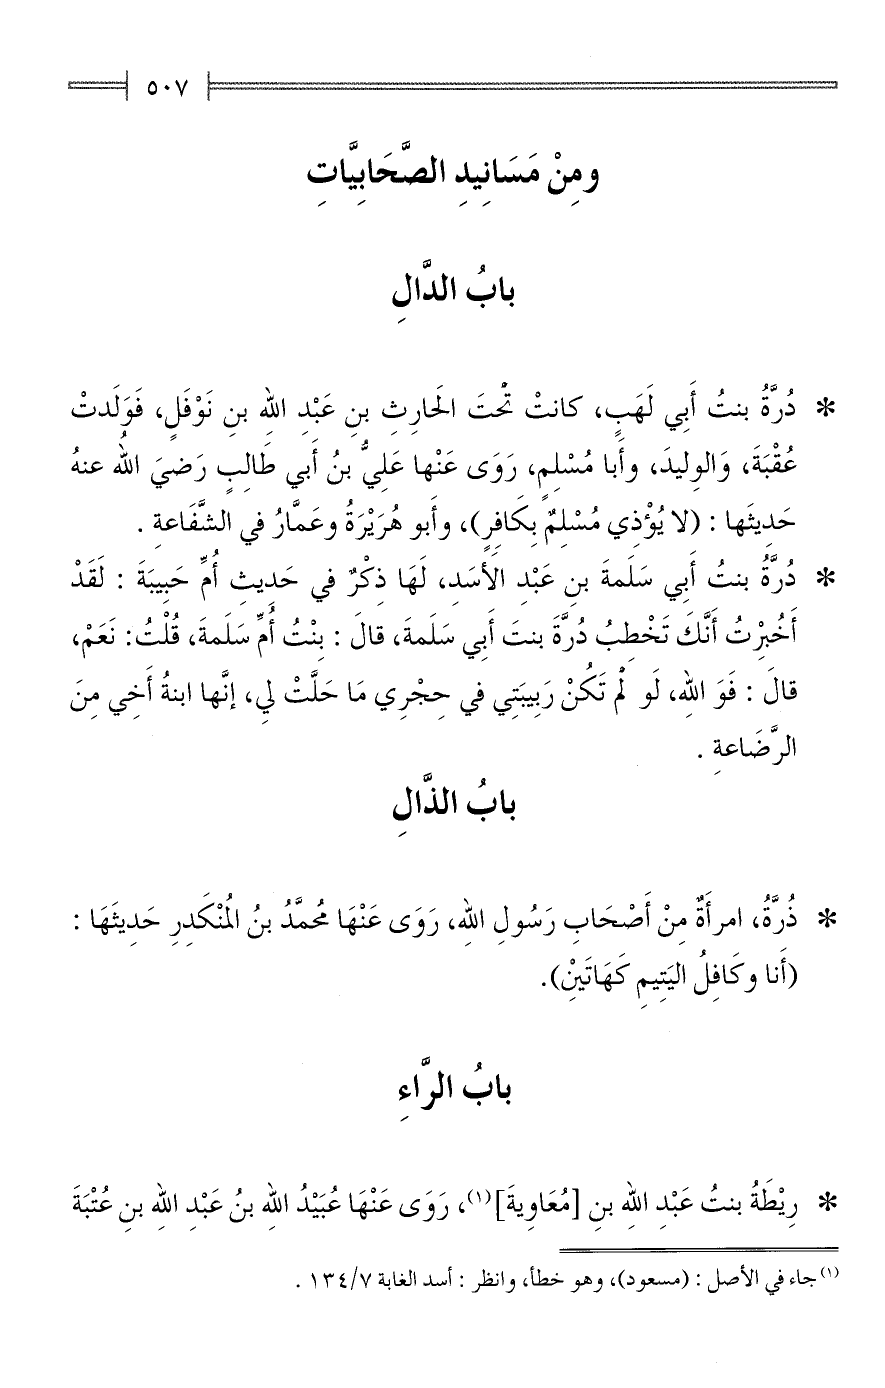 ٥٠٧
ومِنْ مَسَانِيدِ الصَّحَابِيَّاتِ
بابُ الدَّالِ
* دُرَّةُ بنتُ أَبي لَهَبٍ، كانتْ تَحْتَ الحَارِثِ بنِ عَبْدِ اللهِ بنِ نَوْفَلٍ، فَوَلَدتْ
عُقْبَةَ، وَالوِليدَ، وأَبا مُسْلِمٍ، رَوَى عَنْها عَلِيُّ بنُ أَبي طَالِبٍ رَضِيَ اللهُ عنهُ
حَدِيثَها : (لا يُؤْذِي مُسْلِمٌ بِكَافِرٍ)، وأَبو هُرَيْرَةُ وعَمَّارُ في الشَّفَاعةِ .
* دُرَّةُ بنتُ أَبي سَلَمةَ بنِ عَبْدِ الأَسَدِ، لَهَا ذِكْرٌ في حَدِيثِ أُمِّ حَبِيبَةَ : لَقَدْ
أُخْبِرْتُ أَنَّكَ تَخْطِبُ دُرَّةَ بنتَ أَبي سَلَمةَ، قالَ : بِنْتُ أُمِّ سَلَمةَ، قُلْتُ: نَعَمْ،
قالَ : فَوَ اللهِ، لَو لَمْ تَكُنْ رَبِيبَتِي في حِجْرِي مَا حَلَّتْ لِي، إنَّها ابنةُ أَخِي مِنَ
الرَّضَاعةِ .
بابُ الذَّالِ
* ذُرَّةُ، امرأَةٌ مِنْ أَصْحَابِ رَسُولِ اللهِ، رَوَى عَنْهَا مُحمَّدُ بنُ المُنْكَدِرِ حَدِيثَهَا :
(أَنا وكَافِلُ اليَتِيمِ كَهَاتَيْنِ).
بابُ الرَّاءِ
* رِيْطَةُ بنتُ عَبْدِ اللهِ بنِ [مُعَاوِيةَ](١)، رَوَى عَنْهَا عُبَيْدُ اللهِ بنُ عَبْدِ اللهِ بنِ عُتْبَةَ
(١) جاء في الأصل : (مسعود)، وهو خطأ، وانظر : أسد الغابة ١٣٤/٧ .